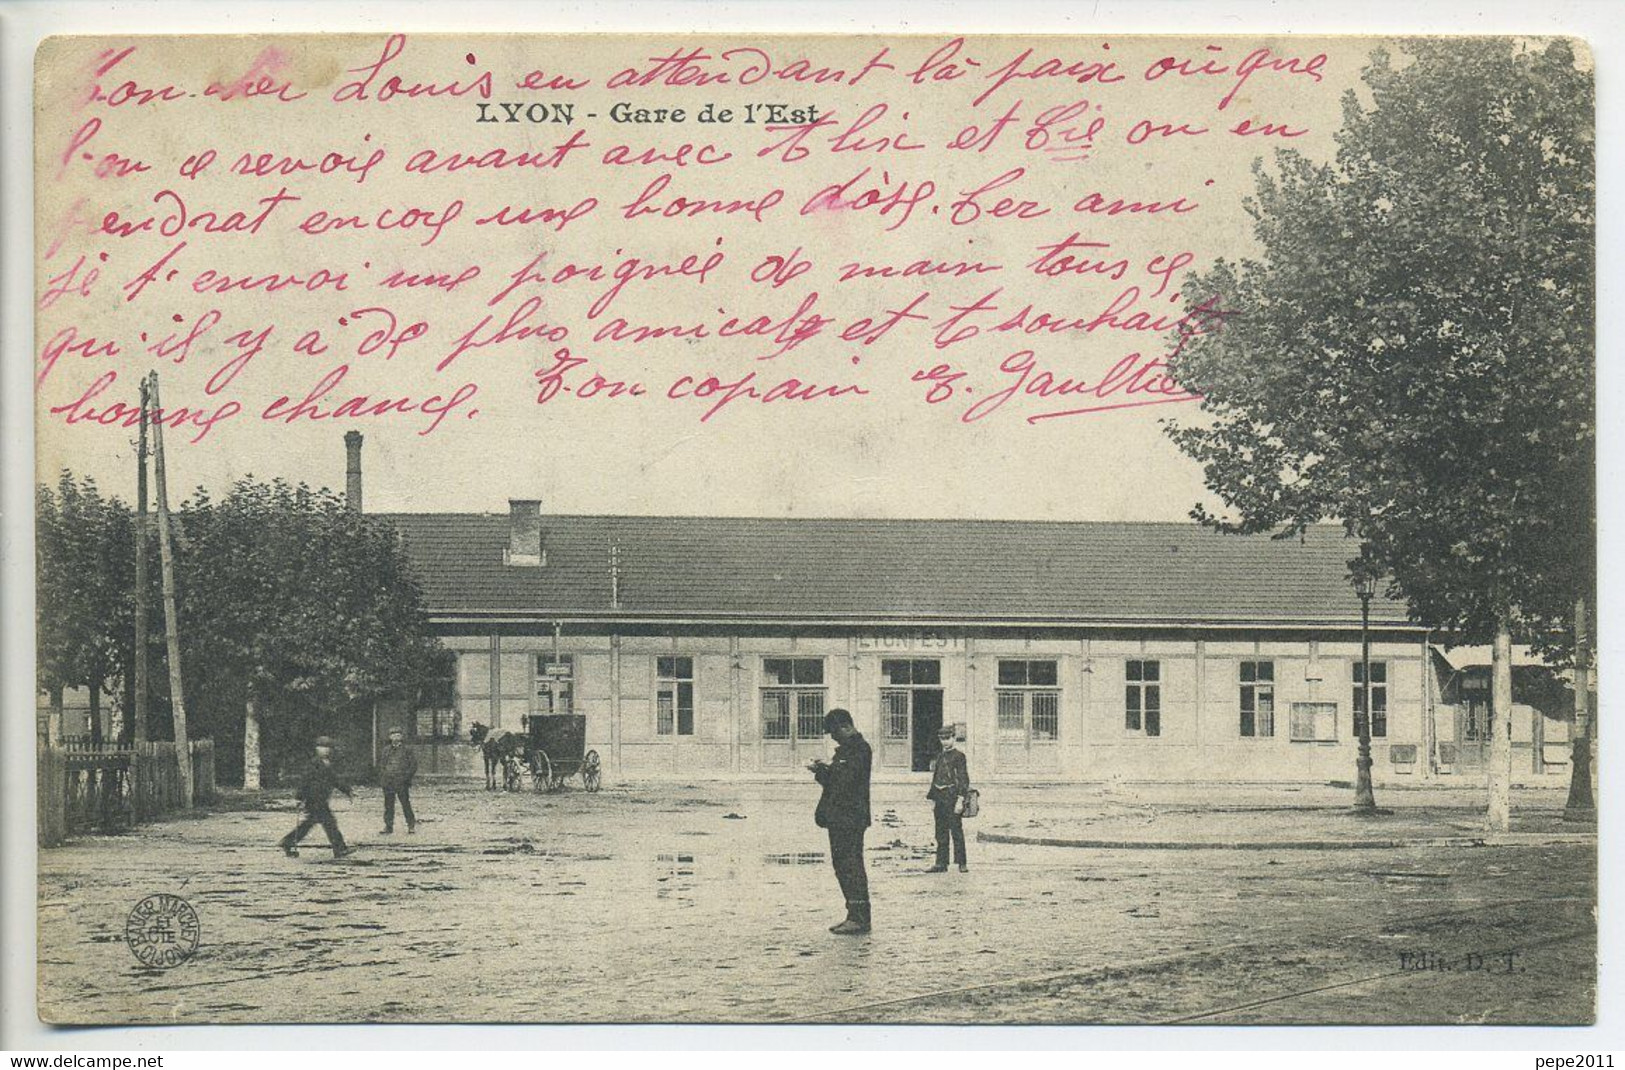 Mon cher Louis en attendant la paix où que
LYON - Gare de l'Est
l'on ce revoie avant avec Alix et Cie on en
pendrat encore une bonne dose. Cer ami
je t'envoi une poignée de main tous ce
qu'il y à de plus amicale et te souhaite
bonne chance. Ton copain E. Gaultier
LYON-EST
BAUER, MARCHET
ET
CIE
DIJON
Edit. D. T.
delcampe.net
pepe2011